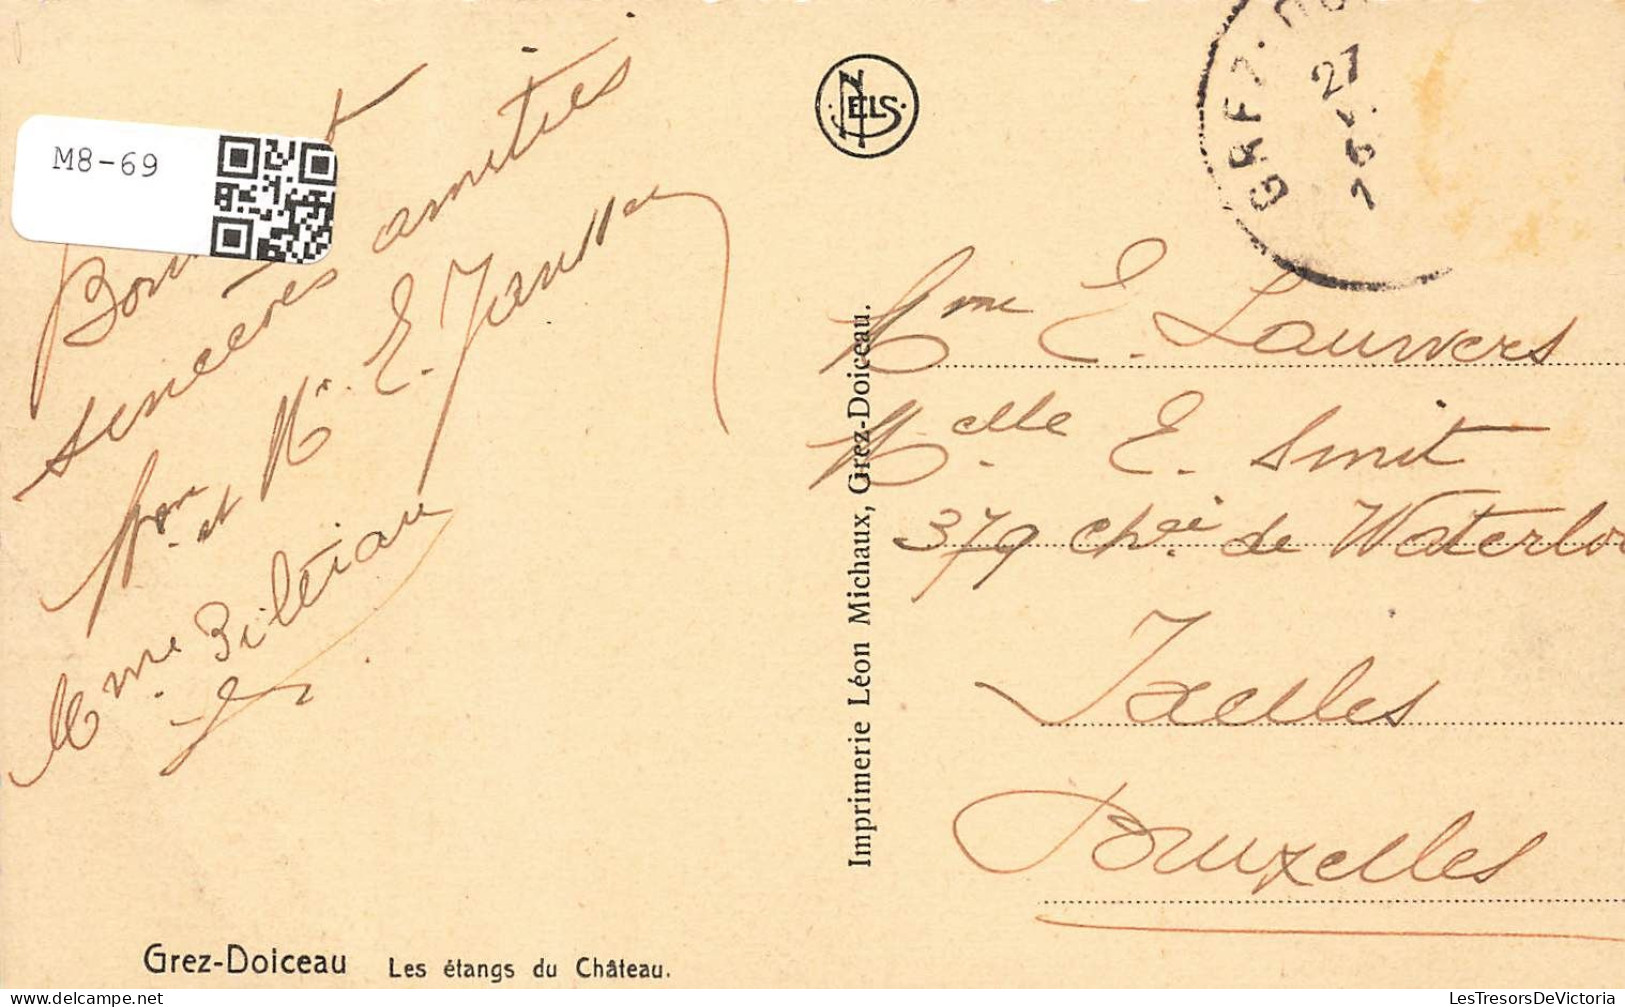 M8-69
sincères amitiés
Mme et Mr. E. Janssen
Mme
NELS
GREZ-DOI
27
Mme E. Lauwers
Melle E. Smit
379 chée de Waterloo
Ixelles
Bruxelles
Imprimerie Léon Michaux, Grez-Doiceau.
Grez-Doiceau Les étangs du Château.
LesTresorsDeVictoria
© www.delcampe.net